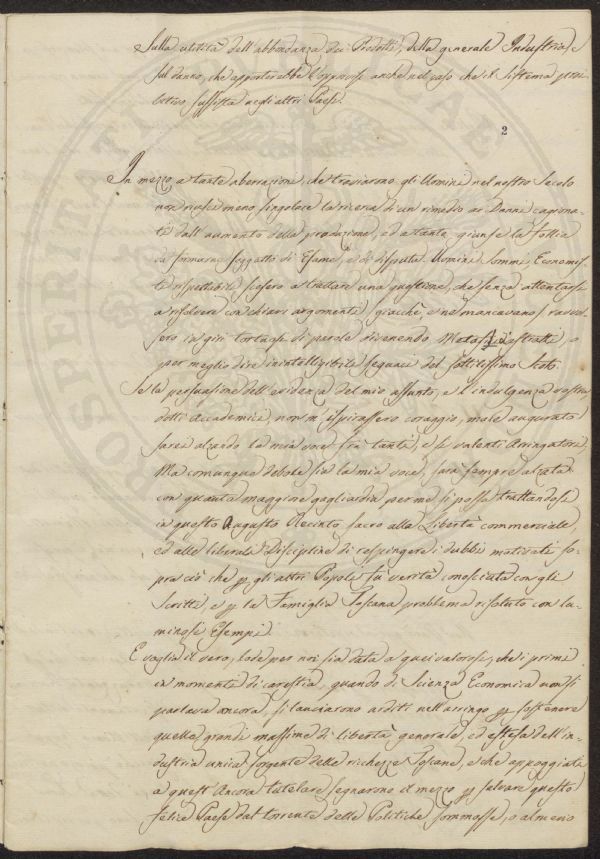 Sulla utilità dell'abbondanza dei Prodotti, della generale Industria e
sul danno, che apporterebbe l'opporsi anche nel caso che il sistema proi-
bitivo sussista negli altri Paesi.
2
In mezzo a tante aberrazioni, che traviarono gli Uomini nel nostro Secolo
non riuscì meno singolare la ricerca di un rimedio ai Danni cagiona-
ti dall'aumento della produzione, ed a tanta giunse la follia
da formarne soggetto di esame, e di disputa. Uomini sommi Economis-
ti rispettabili scesero a trattare una questione, che senza attentarsi
a risolvere con chiari argomenti, giacchè ne mancavano, ravvol-
sero in giri tortuosi di parole divenendo Metafisici astratti, o
per meglio dire inintelligibili seguaci del sottilissimo Scoto.
Se la persuasione dell'evidenza del mio assunto, e l'indulgenza vostra
dotti Accademici, non m'ispirassero coraggio, male augurato
sarei alzando la mia voce frà tanti, e sì valenti Arringatori,
Ma comunque debole sia la mia voce, sarà sempre alzata
con quanta maggiore gagliardia per me si possa trattandosi
in questo Augusto Recinto, sacro alla Libertà commerciale,
ed alle liberali Discipline di respingere i dubbi motivati so-
pra ciò che p gli altri Popoli fù verità conosciuta con gli
Scritti, e p la Famiglia Toscana problema risoluto con lu-
minosi Esempi.
E vaglia il vero, lode per noi sia data a quei valorosi, che i primi
in momenti di carestia, quando di Scienza Economica non si
parlava ancora, si lanciarono arditi nell'arringo p sostenere
quelle grandi massime di libertà generale, ed estesa dell'in-
dustria unica sorgente delle ricchezze Toscane, e che appoggiati
a quest'Ancora tutelare segnarono il mezzo p salvare questo
felice Paese dal torrente delle Politiche sommosse, o almeno